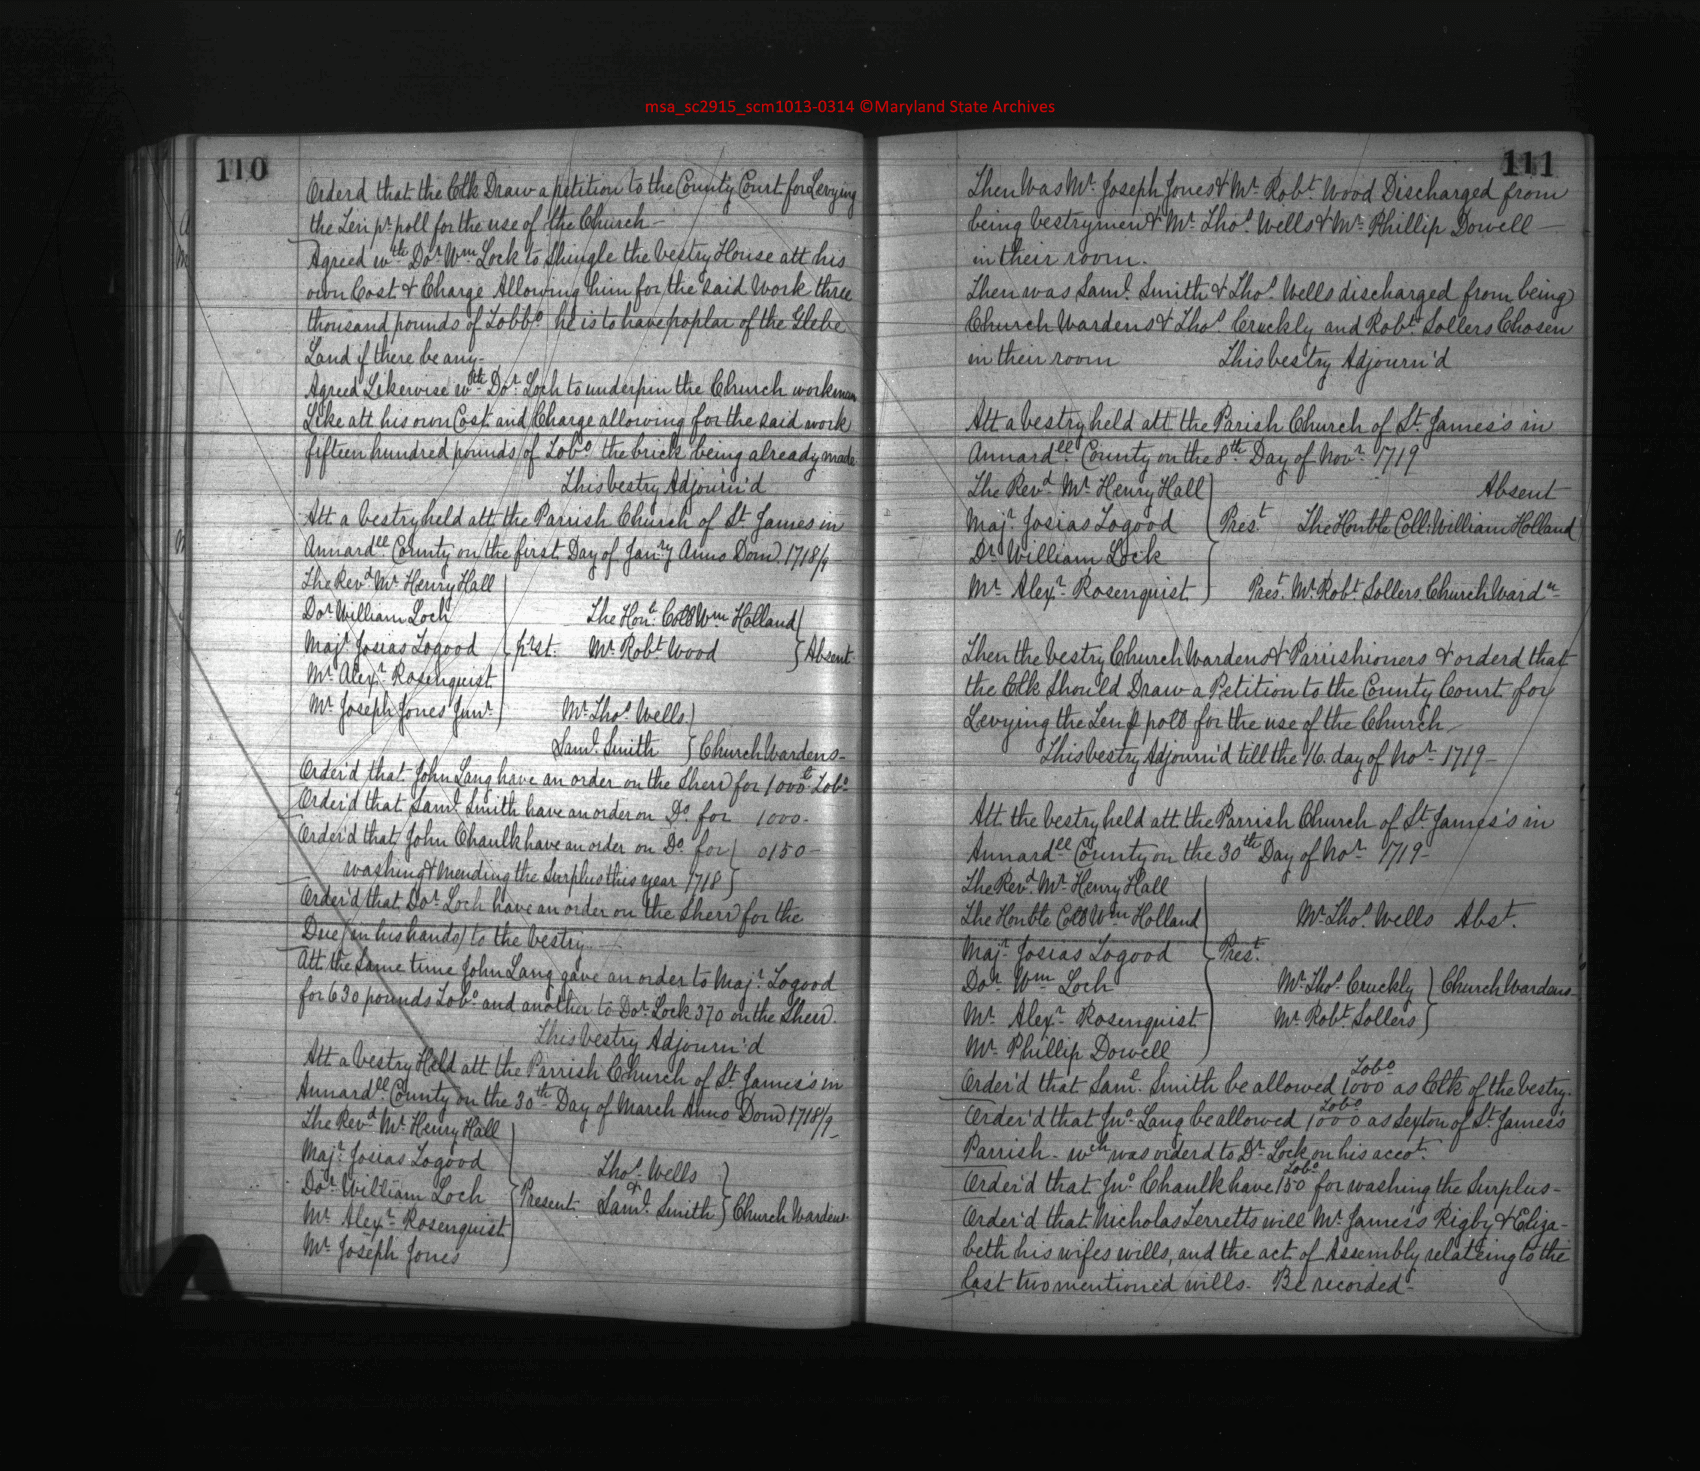 msa_sc2915_scm1013-0314 ©Maryland State Archives
110
Orderd that the Clk Draw a petition to the County Court for Levying
the Ten pr poll for the use of the Church -
Agreed wth Dor Wm Lock to Shingle the Vestry House att his
own Cost & Charge Allowing him for the said Work three
thousand pounds of Tobbo he is to have poplar of the Glebe
Land if there be any-
Agreed Likewise wth Dor Loch to underpin the Church workman
Like att his own Cost and Charge allowing for the said work
fifteen hundred pounds of Tobo the brick being already made
This vestry Adjourn'd
Att a vestry held att the Parrish Church of St James in
Annardell County on the first Day of Janry Anno Dom 1718/9
The Revd Mr Henry Hall
Dor William Loch
The Hone Coll Wm Holland
Majr Josias Togood
prst.
Mr Robt Wood
Absent.
Mr Alexr Rosenquist
Mr Joseph Jones Junr
Mr Thos Wells
Saml Smith
Church Wardens-
Order'd that John Lang have an order on the Sherr for 1000 lt Tobo
Order'd that Saml Smith have an order on Do for 1000-
Order'd that John Chaulk have an order on Do for 0150-
washing & mending the Surplus this year 1718
Order'd that Dor Loch have an order on the Sherr for the
Due (in his hands) to the vestry
Att the same time John Lang gave an order to Majr Togood
for 630 pounds Tobo and another to Dor Lock 370 on the Sherr.
This vestry Adjourn'd
Att a vestry Held att the Parrish Church of St James's in
Annardell County on the 30th Day of March Anno Dom 1718/9
The Revd Mr Henry Hall
Majr Josias Togood
Thos Wells
Dor William Loch
Present
& Saml Smith
Church Wardens.
Mr Alexr Rosenquist
Mr Joseph Jones
111
Then Was Mr Joseph Jones & Mr Robt Wood Discharged from
being vestrymen & Mr Thos Wells & Mr Phillip Dowell -
in their room.
Then was Saml Smith & Thos Wells discharged from being
Church Wardens & Thos Cruckly and Robt Sollers Chosen
in their room This vestry Adjourn'd
Att a vestry held att the Parish Church of St James's in
Annardell County on the 8th Day of Novr 1719
The Revd Mr Henry Hall
Absent
Majr Josias Togood
Prest
The Honble Coll: William Holland
Dr William Lock
Mr Alexr Rosenquist
Prest Mr Robt Sollers Church Warden
Then the vestry Church Wardens & Parrishioners & orderd that
the Clk Should Draw a Petition to the County Court for
Levying the Ten p poll for the use of the Church
This vestry Adjourn'd till the 16. day of Nor 1719-
Att the vestry held att the Parrish Church of St James's in
Annardell County on the 30th Day of Nor 1719-
The Revd Mr Henry Hall
The Honble Coll Wm Holland
Mr Thos Wells Abst.
Majr Josias Togood
Prest.
Dor Wm Loch
Mr Thos Cruckly
Church Wardens
Mr Alexr Rosenquist
Mr Robt Sollers
Mr Phillip Dowell
Order'd that Saml Smith be allowed 1000 Tobo as Clk of the Vestry.
Order'd that Jno Lang be allowed 1000 Tobo as Sexton of St James's
Parrish - wch was orderd to Dr Lock on his accot.
Order'd that Jno Chaulk have 150 Tobo for washing the Surplus-
Order'd that Nicholas Terretts will Mr James's Rigby & Eliza-
beth his wifes wills, and the act of Assembly relateing to the
last two mentioned wills. Be recorded-